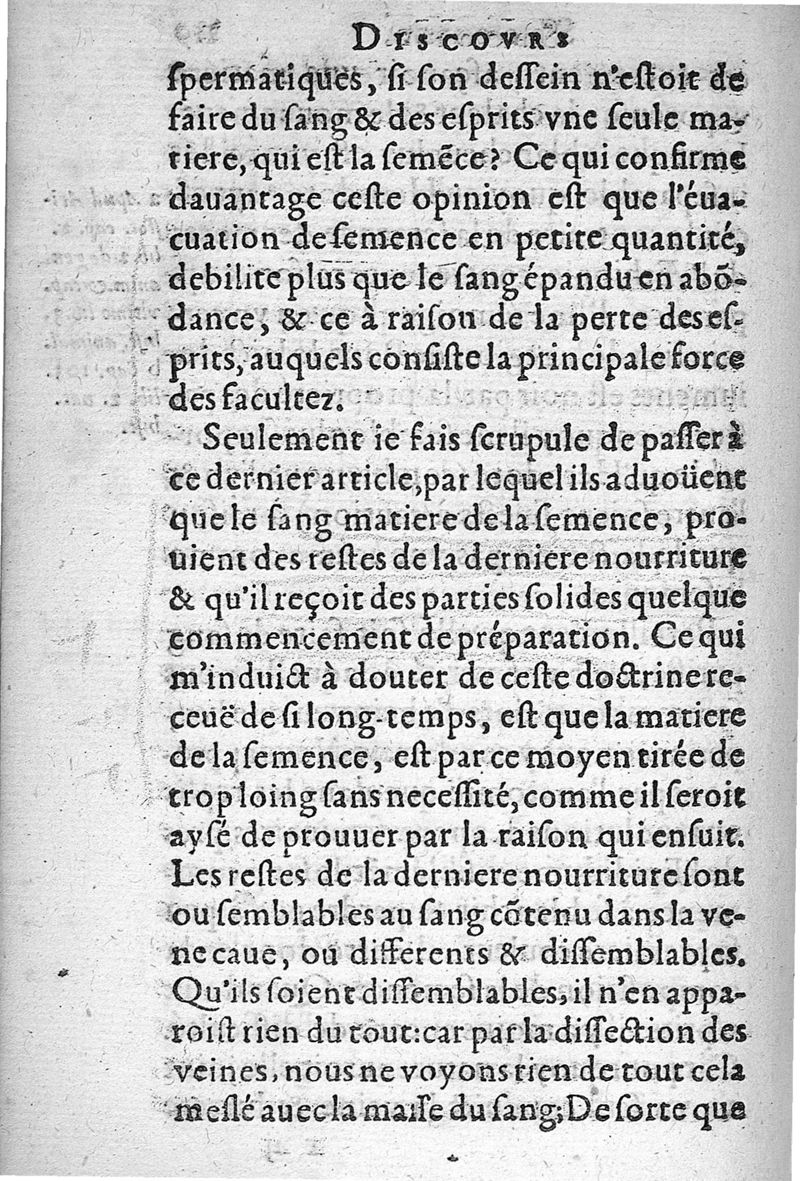 DISCOVRS
ſpermatiques, ſi ſon deſſein n'eſtoit de
faire du ſang & des eſprits vne ſeule ma-
tiere, qui eſt la ſemẽce? Ce qui confirme
dauantage ceſte opinion eſt que l'éua-
cuation de ſemence en petite quantité,
debilite plus que le ſang épandu en abõ-
dance, & ce à raiſon de la perte des eſ-
prits, auquels conſiſte la principale force
des facultez.
Seulement ie fais ſcrupule de paſſer à
ce dernier article, par lequel ils aduoüent
que le ſang matiere de la ſemence, pro-
uient des reſtes de la derniere nourriture
& qu'il reçoit des parties ſolides quelque
commencement de préparation. Ce qui
m'induict à douter de ceſte doctrine re-
ceuë de ſi long-temps, eſt que la matiere
de la ſemence, eſt par ce moyen tirée de
trop loing ſans neceſſité, comme il ſeroit
ayſé de prouuer par la raiſon qui enſuit.
Les reſtes de la derniere nourriture ſont
ou ſemblables au ſang cõtenu dans la ve-
ne caue, ou differents & diſſemblables.
Qu'ils ſoient diſſemblables, il n'en appa-
roiſt rien du tout: car par la diſſection des
veines, nous ne voyons rien de tout cela
meſlé auec la maſſe du ſang; De ſorte que